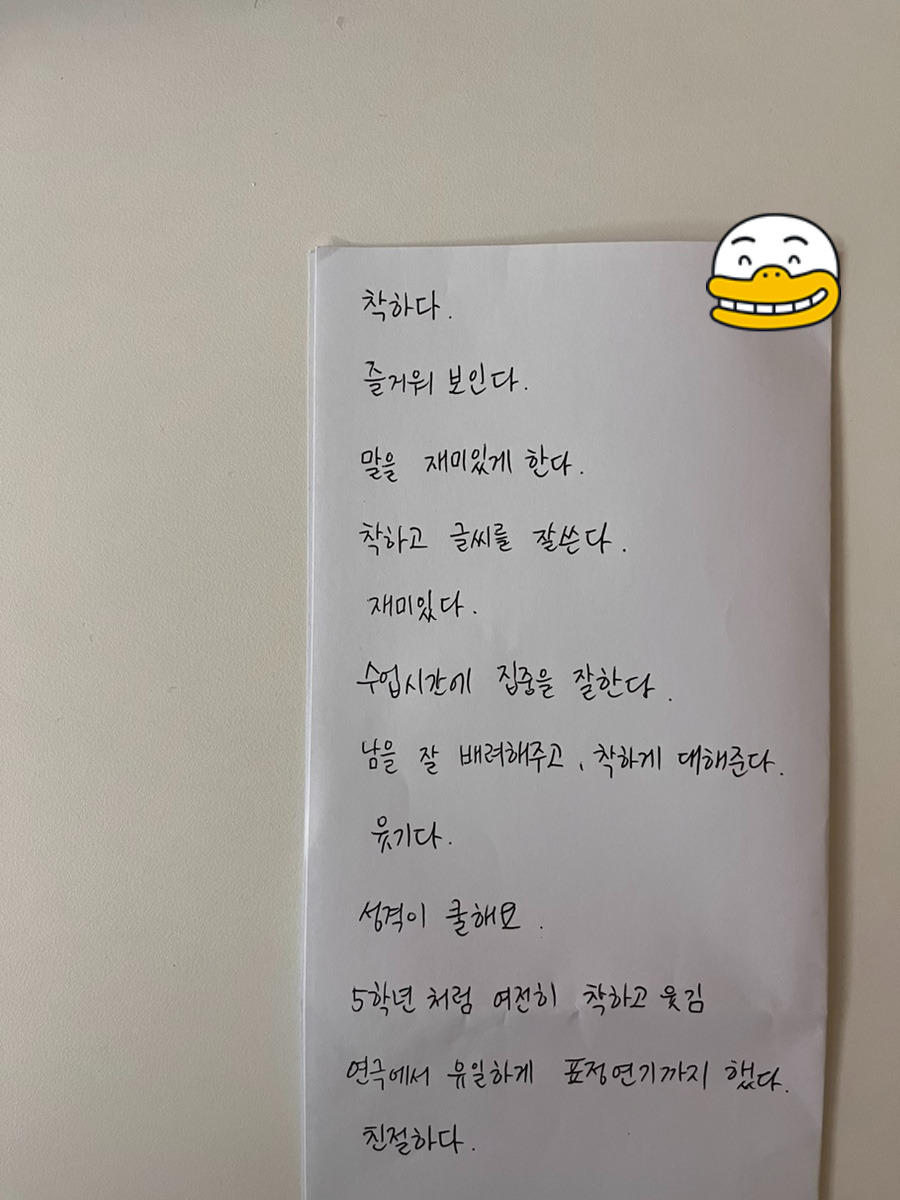 착하다.
즐거워 보인다.
말을 재미있게 한다.
착하고 글씨를 잘쓴다.
재미있다.
수업시간에 집중을 잘한다.
남을 잘 배려해주고, 착하게 대해준다.
웃기다.
성격이 쿨해요.
5학년 처럼 여전히 착하고 웃김
연극에서 유일하게 표정연기까지 했다.
친절하다.